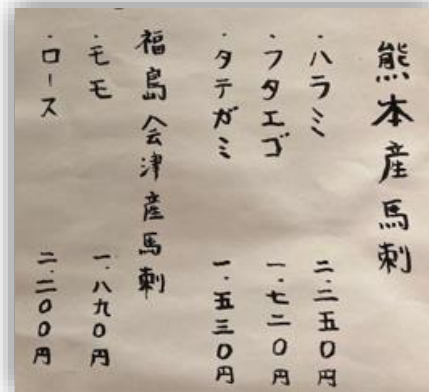 熊本産馬刺
・ハラミ 二.二五〇円
・フタエゴ 一.七二〇円
・タテガミ 一.五三〇円
福島会津産馬刺
・モモ 一.八九〇円
・ロース 二.二〇〇円